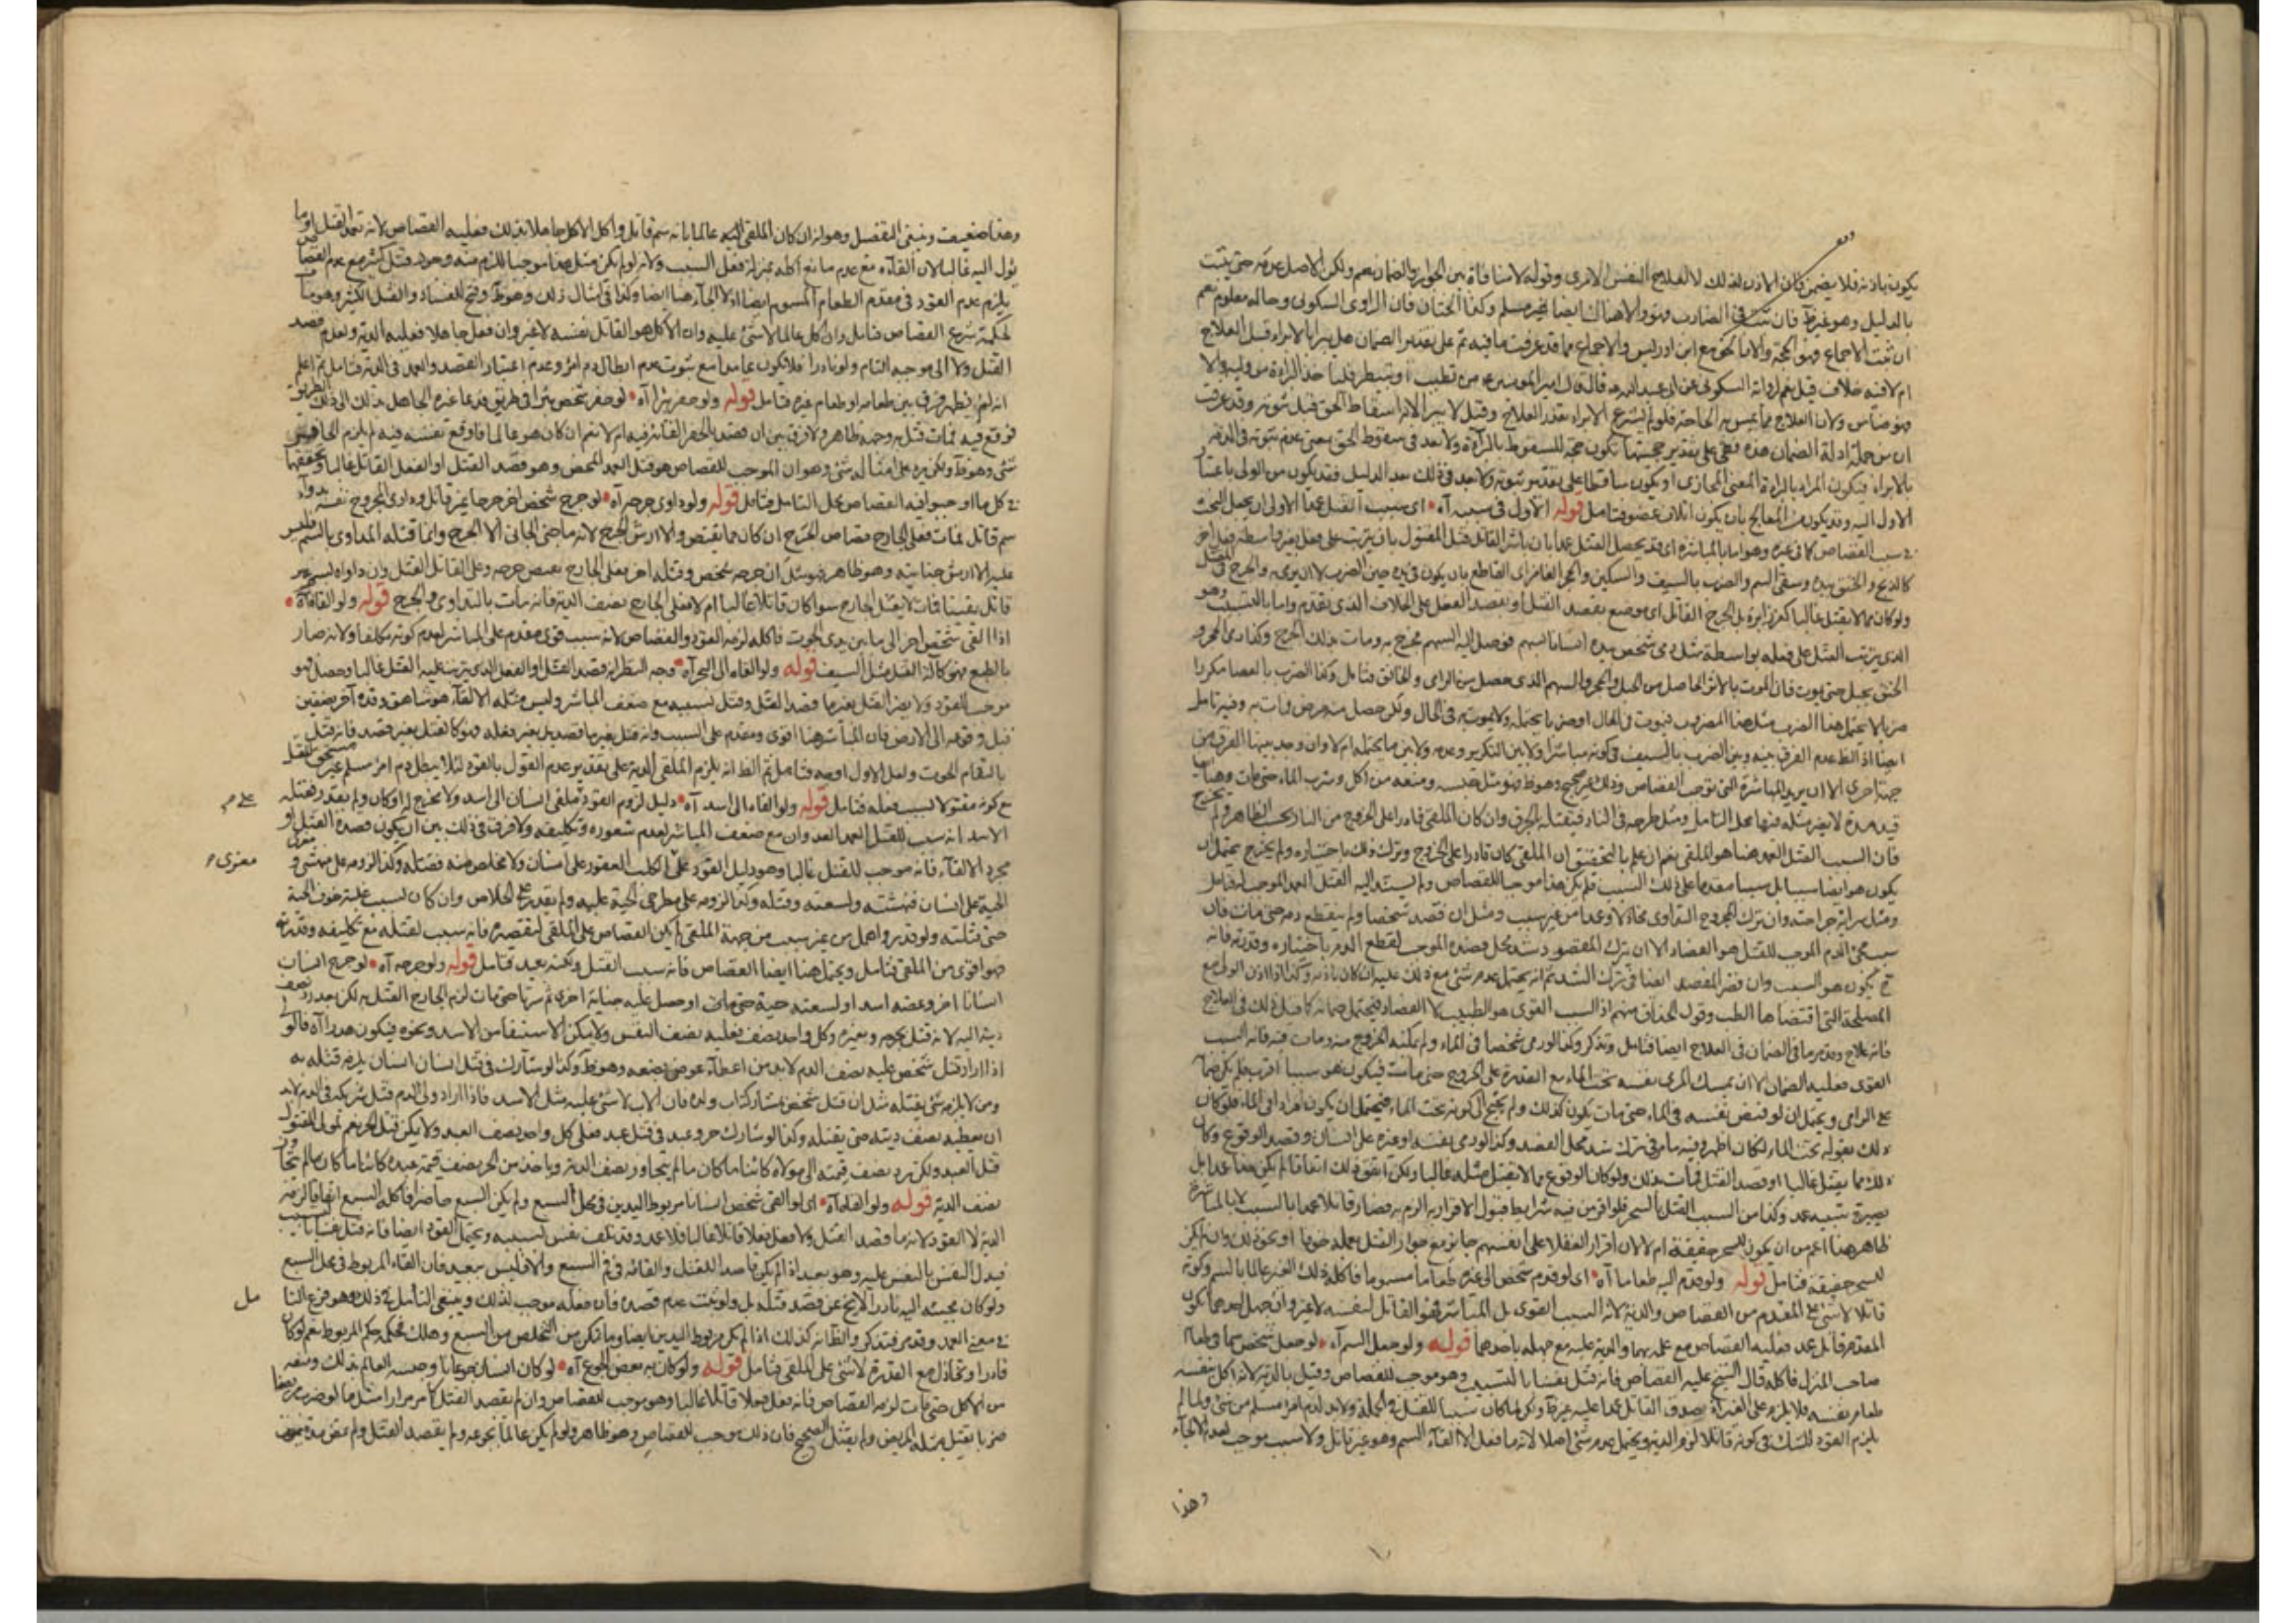 يكون باذنه فلا يضمن فان الاذن لذلك لا للعلاج النفس الامرى وقوله لا منافاة بين الجواز والضمان نعم ولكن الاصل عدمه حتى يثبت
بالدليل وهو غير ظ فان ثبت فى الضارب فهو والا هنا ايضا غير مسلم وكذا الختان فان الراوى السكونى وحاله معلوم نعم
ان ثبت الاجماع فهو الحجة والا فالحق مع ابن ادريس والاجماع مما قد عرفت ما فيه ثم على تقدير الضمان هل يبرا بالابراء قبل العلاج
ام لا فيه خلاف قيل نعم لرواية السكونى عن ابى عبد الله قال قال امير المؤمنين من تطبب او تبيطر فلياخذ البراءة من وليه والا
فهو ضامن ولان العلاج مما يمس به الحاجة فلو لم يشرع الابراء تعذر العلاج وقيل لا يبرا لانه اسقاط الحق قبل ثبوته وقد عرفت
ان من جملة ادلة الضمان هذه فهى على تقدير حجيتها تكون حجة للسقوط بالبراءة ولا بعد فى سقوط الحق بمعنى عدم ثبوته فى الذمة
بالابراء فيكون المراد بالبراءة المعنى المجازى او يكون ساقطا على تقدير ثبوته ولا بعد فى ذلك بعد الدليل فقد يكون من الولى باعتبار
الاول اليه وقد يكون من المعالج بان يكون اتلاف عضو فتامل قوله الاول فى سببه آه اى سبب القتل عمدا الاولى ان يجعل البحث
فى سبب القصاص كما فى غيره وهو اما بالمباشرة اى قد يحصل القتل عمدا بان باشر القاتل قتل المقتول بان يترتب على فعل بغير واسطة فعل اخر
كالذبح والخنق بيده وسقى السم والضرب بالسيف والسكين والحجر الغامز اى القاطع بان يكون فى يده حين الضرب لا ان يرمى والجرح فى المقتل
ولو كان مما لا يقتل غالبا كغرز ابرة بل الجرح القاتل اى موضع بقصد القتل او بقصد الفعل على الخلاف الذى تقدم واما بالتسبيب وهو
الذى يترتب القتل على فعله بواسطة مثل رمى شخص بيده انسانا بسهم فوصل اليه السهم فجرح به ومات بذلك الجرح وكذا رمى الحجر و
الخنق بحبل حتى يموت فان الموت بالاثر الحاصل من الحبل والحجر والسهم الذى حصل من الرامى والخانق فتامل وكذا الضرب بالعصا مكررا
ضربا لا يحتمل هذا الضرب مثل هذا المضروب فيموت فى الحال او ضربا يحتمله ولا يموت به فى الحال ولكن حصل منه مرض فمات به وفيه تامل
ايضا اذ الظ عدم الفرق بينه وبين الضرب بالسيف فى كونه مباشرا ولا بين التكرير وعدمه ولا بين ما يحتمله ام لا وان وجد بينهما الفرق من
جهة اخرى الا ان يريد المباشرة التى توجب القصاص وذلك غير صحيح وهو ظ ومثل حبسه ومنعه من اكل وشرب الماء حتى مات وهنا
قيد مدة لا يصبر مثله فيها محل التامل ومثل طرحه فى النار فيقتله بالحرق وان كان الملقى قادرا على الخروج من النار بحسب الظاهر ولم يخرج
فان السبب القتل العمد هنا هو الملقى نعم ان علم بالتحقيق ان الملقى كان قادرا على الخروج وترك ذلك باختياره ولم يخرج يحتمل ان
يكون هو ايضا سببا بل سببا مقدما على ذلك السبب فلم يكن هذا موجبا للقصاص ولم يستند اليه القتل العمد الموجب له فتامل
ومثل سراية جراحته وان ترك المجروح التداوى مجانا لا وعدا من غير سبب ومثل ان فصد شخصا ولم ينقطع دمه حتى مات فان
سبب مجئ الدم الموجب للقتل هو الفصاد الا ان يترك المفصود شد محل فصده الموجب لقطع الدم باختياره وقدرته فانه
ح يكون هو السبب وان قصر المفصد ايضا فى ترك الشد ثم انه يحتمل عدم شئ مع ذلك عليه ان كان باذنه وكذا اذا اذن الولى مع
المصلحة التى اقتضاها الطب وقول الحذاق منهم اذ السبب القوى هو الطبيب لا الفصاد فيحتمل ضمانه كما قيل ذلك فى العلاج
فانه علاج وقد مر ما فى الضمان فى العلاج ايضا فتامل وتذكر وكذا لو رمى شخصا فى الماء ولم يمكنه الخروج منه ومات فيه فانه السبب
القوى فعليه الضمان الا ان يمسك المرمى نفسه تحت الماء مع القدرة على الخروج حتى مات فيكون هو سببا اقرب فلم يكن ضمان
على الرامى ويحتمل ان لو قبض نفسه فى الماء حتى مات يكون كذلك ولم يحتج الى كونه تحت الماء فيحتمل ان يكون مراده فى الماء فلو كان
ذلك بقوله تحت الماء لكان اظهر وفيه ما مر فى ترك شد محل الفصد وكذا لو رمى بنفسه او غيره على انسان وقصد الوقوع وكان
ذلك مما يقتل غالبا او قصد القتل فمات بذلك ولو كان الوقوع مما لا يقتل مثله غالبا ولكن اتفق ذلك اتفاقا لم يكن هنا عمدا بل
يصير شبيه عمد وكذا من السبب القتل بالسحر فلو اقر من فيه شرايط قبول الاقرار به الزم به فصار قاتلا عمدا بالسبب لا بالمباشرة
ظاهر هذا اعم من ان يكون للسحر حقيقة ام لا لان اقرار العقلاء على انفسهم جايز مع جواز القتل بعمله خوفا او نحو ذلك وان لم يكن
للسحر حقيقة فتامل قوله ولو قدم اليه طعاما آه اى لو قدم شخص الى غيره طعاما مسموما فاكله ذلك الغير عالما بالسم وكونه
قاتلا لا شئ على المقدم من القصاص والدية لانه السبب القوى بل المباشر فهو القاتل لنفسه لا غير وان جهل احدهما يكون
المقدم قاتل عمد فعليه القصاص مع علمه بهما والدية عليه مع جهله باحدهما قوله ولو جعل السم آه لو جعل شخص سما فى طعام
صاحب المنزل فاكله قال الشيخ عليه القصاص فانه قتل نفسا بالتسبيب وهو موجب للقصاص وقيل بالدية لانه اكل بنفسه
طعام نفسه فلا يلزمه على الغير اذ صدق القاتل عمدا عليه غير ظ ولكن لما كان سببا للقتل فى الجملة ولا بد لدم امرء مسلم من شئ ولما لم
يلزم القود للشك فى كونه قاتلا لزم الدية ويحتمل عدم شئ اصلا لانه ما فعل الا القاء السم وهو غير قاتل ولا سبب موجب لعدم الالجاء
وهذا
وهذا ضعيف وينبغى التفصيل وهو انه ان كان الملقى اليه عالما بانه سم قاتل واكل الاكل جاهلا بذلك فعليه القصاص لانه تعمد القتل او ما
يؤل اليه غالبا لان القاءه مع عدم مانع اكله بمنزلة فعل السبب ولانه لو لم يكن مثل هذا موجبا للزم منه وجود قتل كثير مع عدم القصاص
يلزم عدم القود فى مقدم الطعام المسموم ايضا اذ لا الجاء هنا ايضا وكذا فى امثال ذلك وهو ظ وفتح للفساد والقتل الكثير وهو مناف
لحكمة شرع القصاص فتامل وان اكل عالما لا شئ عليه وان الاكل هو القاتل نفسه لا غير وان فعل جاهلا فعليه الدية وبعدم قصد
القتل ولا الى موجبه التام ولو نادرا فلا يكون عامدا مع ثبوت عدم ابطال دم امرئ وعدم اعتبار القصد والعمد فى الدية فتامل ثم اعلم
انه لم يظهر فرق بين طعامه او طعام غيره فتامل قوله ولو حفر بئرا آه لو حفر شخص بئرا فى طريق فدعا غيره الجاهل بذلك الى ذلك الطريق
فوقع فيه فمات قتل به وجهه ظاهر ولا فرق بين ان قصد بالحفر القتل فيه ام لا نعم ان كان هو عالما فاوقع نفسه فيه لم يلزم الحافر
شئ وهو ظ ولكن يرد على امثاله شئ وهو ان الموجب للقصاص هو قتل العمد المحض وهو قصد القتل او الفعل القاتل غالبا وتحققها
فى كل ما اوجبوا فيه القصاص محل التامل فتامل قوله ولو داوى جرحه آه لو جرح شخص اخر جرحا غير قاتل وداوى المجروح نفسه بدواء
سم قاتل فمات فعلى الجارح قصاص الجرح ان كان مما يقتص والا ارش الجرح لانه ما جنى الجانى الا الجرح وانما قتله المداوى بالسم فليس
عليه الا ارش جنايته وهو ظاهر فهو مثل ان جرحه شخص وقتله اخر فعلى الجارح بعوض جرحه وعلى القاتل القتل وان داواه بسم غير
قاتل يقينا فمات لا يقتل الجارح سواء كان قاتلا غالبا ام لا فعلى الجارح نصف الدية فانه مات بالتداوى والجرح قوله ولو القاه آه
اذا القى شخص اخر الى ما بين يدى الحوت فاكله لزمه القود والقصاص لانه سبب قوى مقدم على المباشر لعدم كونه مكلفا ولانه ضار
بالطبع فهو كآلة القتل مثل السيف قوله ولو القاه الى البحر آه وجه النظر انه قصد القتل او الفعل الذى يترتب عليه القتل غالبا وحصل فهو
موجب القود ولا يضر القتل بغير ما قصد القتل وقتل بسببه مع ضعف المباشر وليس مثله الالقاء من شاهق وقده آخر بنصفين
قبل وقوعه الى الارض فان المباشر هنا اقوى ومقدم على السبب وانه قتل بغير ما قصد بل بغير فعله فهو كالقتل بغير قصد فانه قتل
بالتقام الحوت ولعل الاول اوجه فتامل ثم الظ انه يلزم الملقى الدية على تقدير عدم القول بالقود لئلا يبطل دم امرء مسلم غير مستحق للقتل
مع كونه مقتولا بسبب فعله فتامل قوله ولو القاه الى اسد آه دليل لزوم القود على ملقى انسان الى اسد ولا يخرج له او كان ولم يقدر وقتله
الاسد انه سبب للقتل العمد العد وان مع ضعف المباشر لعدم شعوره وتكليفه ولا فرق فى ذلك بين ان يكون قصده القتل او
مجرد الالقاء فانه موجب للقتل غالبا وهو دليل القود على الكلب العقور على انسان ولا مخلص منه فقتله وكذا لزومه على منهشى و
الحية على انسان فنهشته ولسعته وقتله وكذا لزومه على مطرحى الحية عليه ولم يقدر على الخلاص وان كان لسبب غلبة خوف الحية
حتى قتلته ولو قدر واهمل من غير سبب من جهة الملقى لم يكن القصاص على الملقى لتقصيره فانه سبب لقتله مع تكليفه وقدرته
فهو اقوى من الملقى فتامل ويحتمل هنا ايضا القصاص فانه سبب القتل ولكنه بعيد فتامل قوله ولو جرحه آه لو جرح انسان
انسانا اخر وعضه اسد او لسعته حية حتى مات او حصل عليه جناية اخرى ثم سرتا حتى مات لزم الجارح القتل به لكن بعد رد نصف
ديته اليه لانه قتل بجرحه وبغيره وكل واحد نصف فعليه نصف النفس ولا يمكن الاستيفاء من الاسد ونحوه فيكون هدرا آه قالوا
اذا اراد قتل شخص عليه نصف الدم لا بد من اعطاء عوض نصفه وهو ظ وكذا لو شارك فى قتل انسان انسان يلزمه قتله به
ومن لا يلزمه شئ بقتله مثل ان قتل شخص بمشاركة اب ولده فان الاب لا شئ عليه مثل الاسد فاذا اراد ولى الدم قتل شريكه فى الدم لا بد
ان يعطيه نصف ديته حتى يقتله وكذا لو شارك حر وعبد فى قتل عبد فعلى كل واحد نصف العبد ولا يمكن قتل الحر نعم لمولى المقتول
قتل العبد ولكن يرد نصف قيمته الى مولاه كائنا ما كان ما لم يتجاوز نصف الدية وياخذ من الحر نصف قيمة عبده كائنا ما كان ما لم يتجاوز
نصف الدية قوله ولو القاه آه اى لو القى شخص انسانا مربوط اليدين فى محل السبع ولم يكن السبع حاضرا فاكله السبع اتفاقا لزمه
الدية لا القود لانه ما قصد القتل ولا فعل فعلا قاتلا غالبا فلا عمد وقد تلف نفس بسببه ويحتمل القود ايضا فانه قتل نفسا بالسبب
فيدل النفس بالنفس عليه وهو بعيد اذا لم يكن قاصدا للقتل والقائه فى فم السبع والا فليس ببعيد فان القاء المربوط فى محل السبع
ولو كان مجيئه اليه نادرا لا يخ عن قصد قتله بل ولو ثبت عدم قصده فان فعله موجب لذلك وينبغى التامل فى ذلك وهو فرع التا
فى معنى العمد وقد مر فتذكر والظ انه كذلك اذا لم يكن مربوط اليدين ايضا وما تمكن من التخلص من السبع وهلك فحكمه حكم المربوط نعم لو كان
قادرا وتخاذل مع القدرة لا شئ على الملقى فتامل قوله ولو كان به بعض الجوع آه لو كان انسان جوعانا وحبسه العالم بذلك ومنعه
من الاكل حتى مات لزمه القصاص فانه فعل فعلا قاتلا غالبا وهو موجب للقصاص وان لم يقصد القتل كما مر مرارا مثل ما لو ضرب مريضا
ضربا يقتل مثله المريض ولم يقتل الصحيح فان ذلك موجب للقصاص وهو ظاهر ولو لم يكن عالما بجوعه ولم يقصد القتل ولم يمض مدة يموت